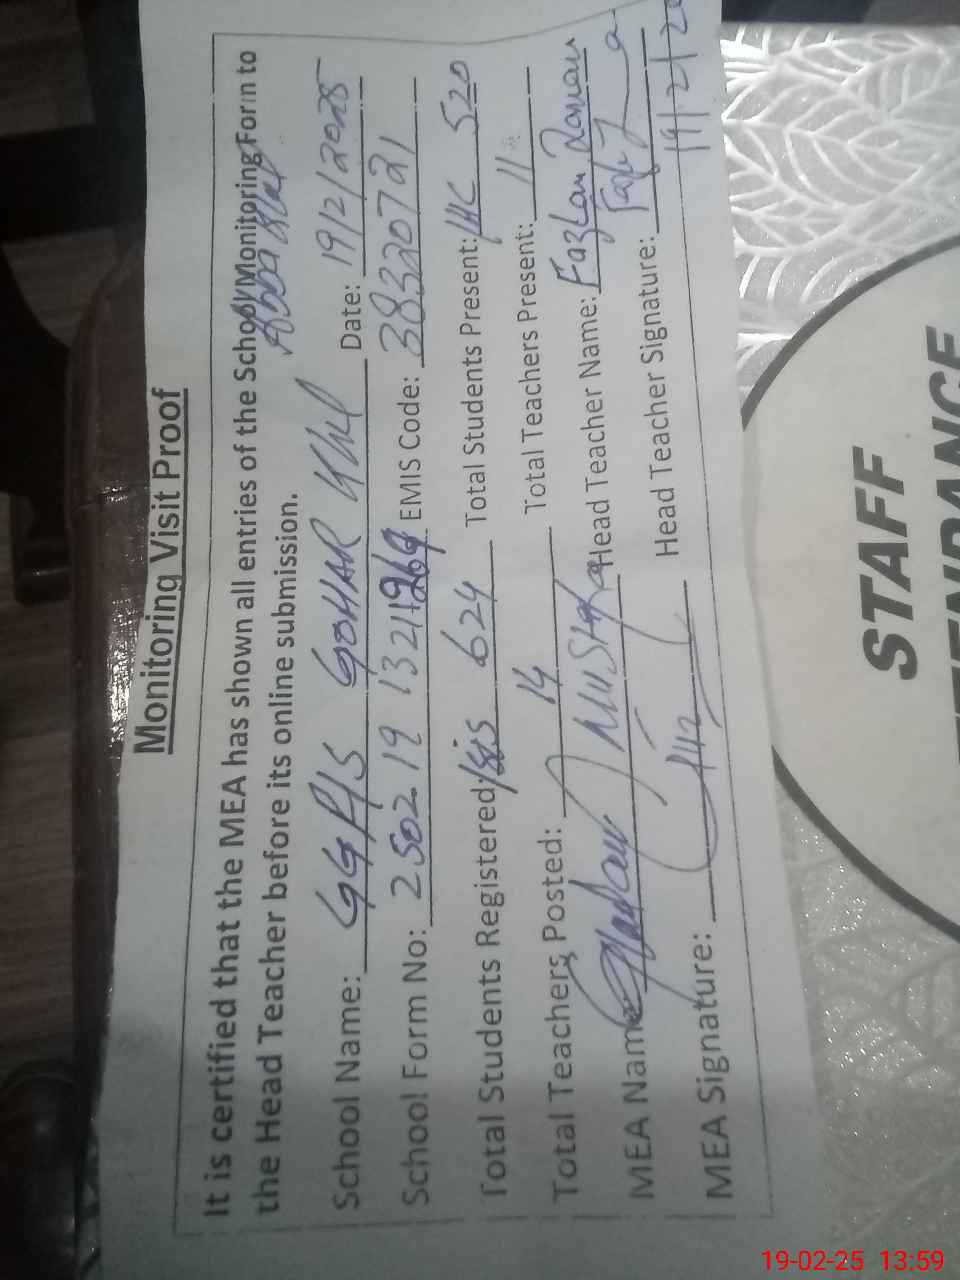 Monitoring Visit Proof
It is certified that the MEA has shown all entries of the School Monitoring Form to
the Head Teacher before its online submission.
School Name: GGPS GOHAR Date: 19/2/2025
School Form No: 2502 19 1321 EMIS Code: 38320721
Total Students Registered: 624 Total Students Present: 520
Total Teachers Posted: 14 Total Teachers Present: 11
MEA Name Head Teacher Name: Fazlan
MEA Signature: Head Teacher Signature:
19/2/20
STAFF
19-02-25 13:59